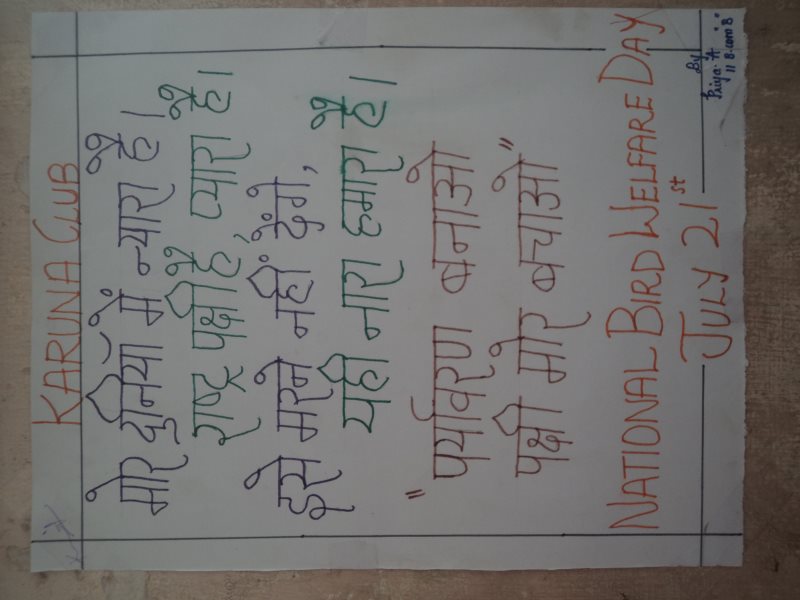 KARUNA CLUB
मोर दुनियाँ में न्यारा है।
राष्ट्र पक्षी है, प्यारा है।
इसे मरने नहीं देंगे,
यही नारा हमारा है।
"पर्यावरण बनाओ
पक्षी मोर बचाओ"
NATIONAL BIRD WELFARE DAY
JULY 21st
By
Priya. A
11 B.com B